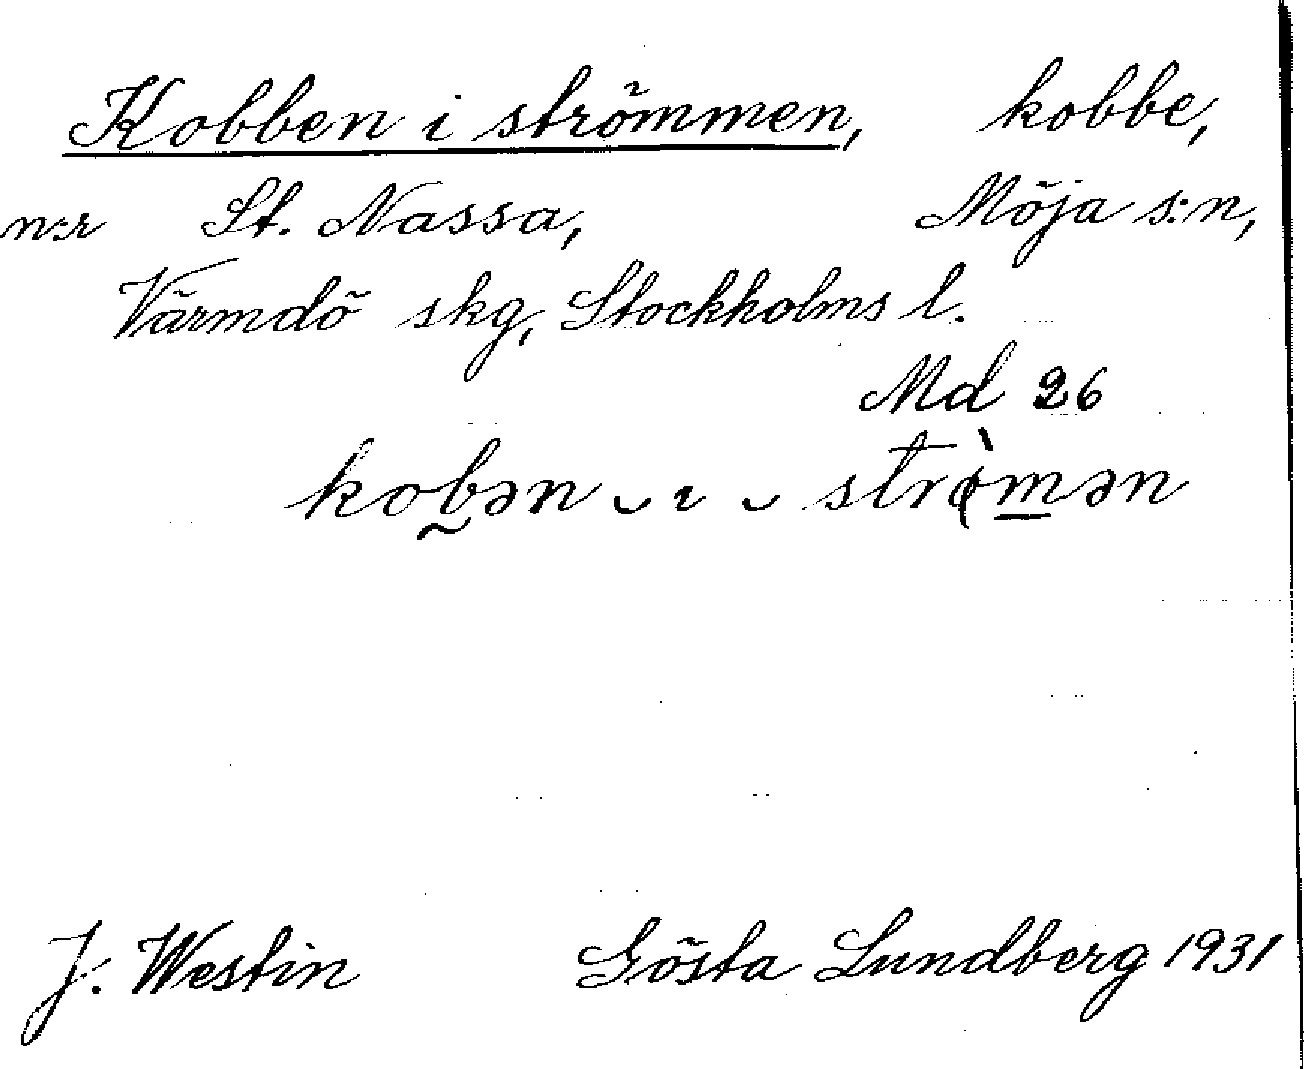 Kobben i strömmen, kobbe,
n:r St. Nassa, Möja s:n,
Värmdö skg, Stockholms l.
Md 26
kobən ‿ ı ‿ strǫ̀mən
J. Westin Gösta Lundberg 1931